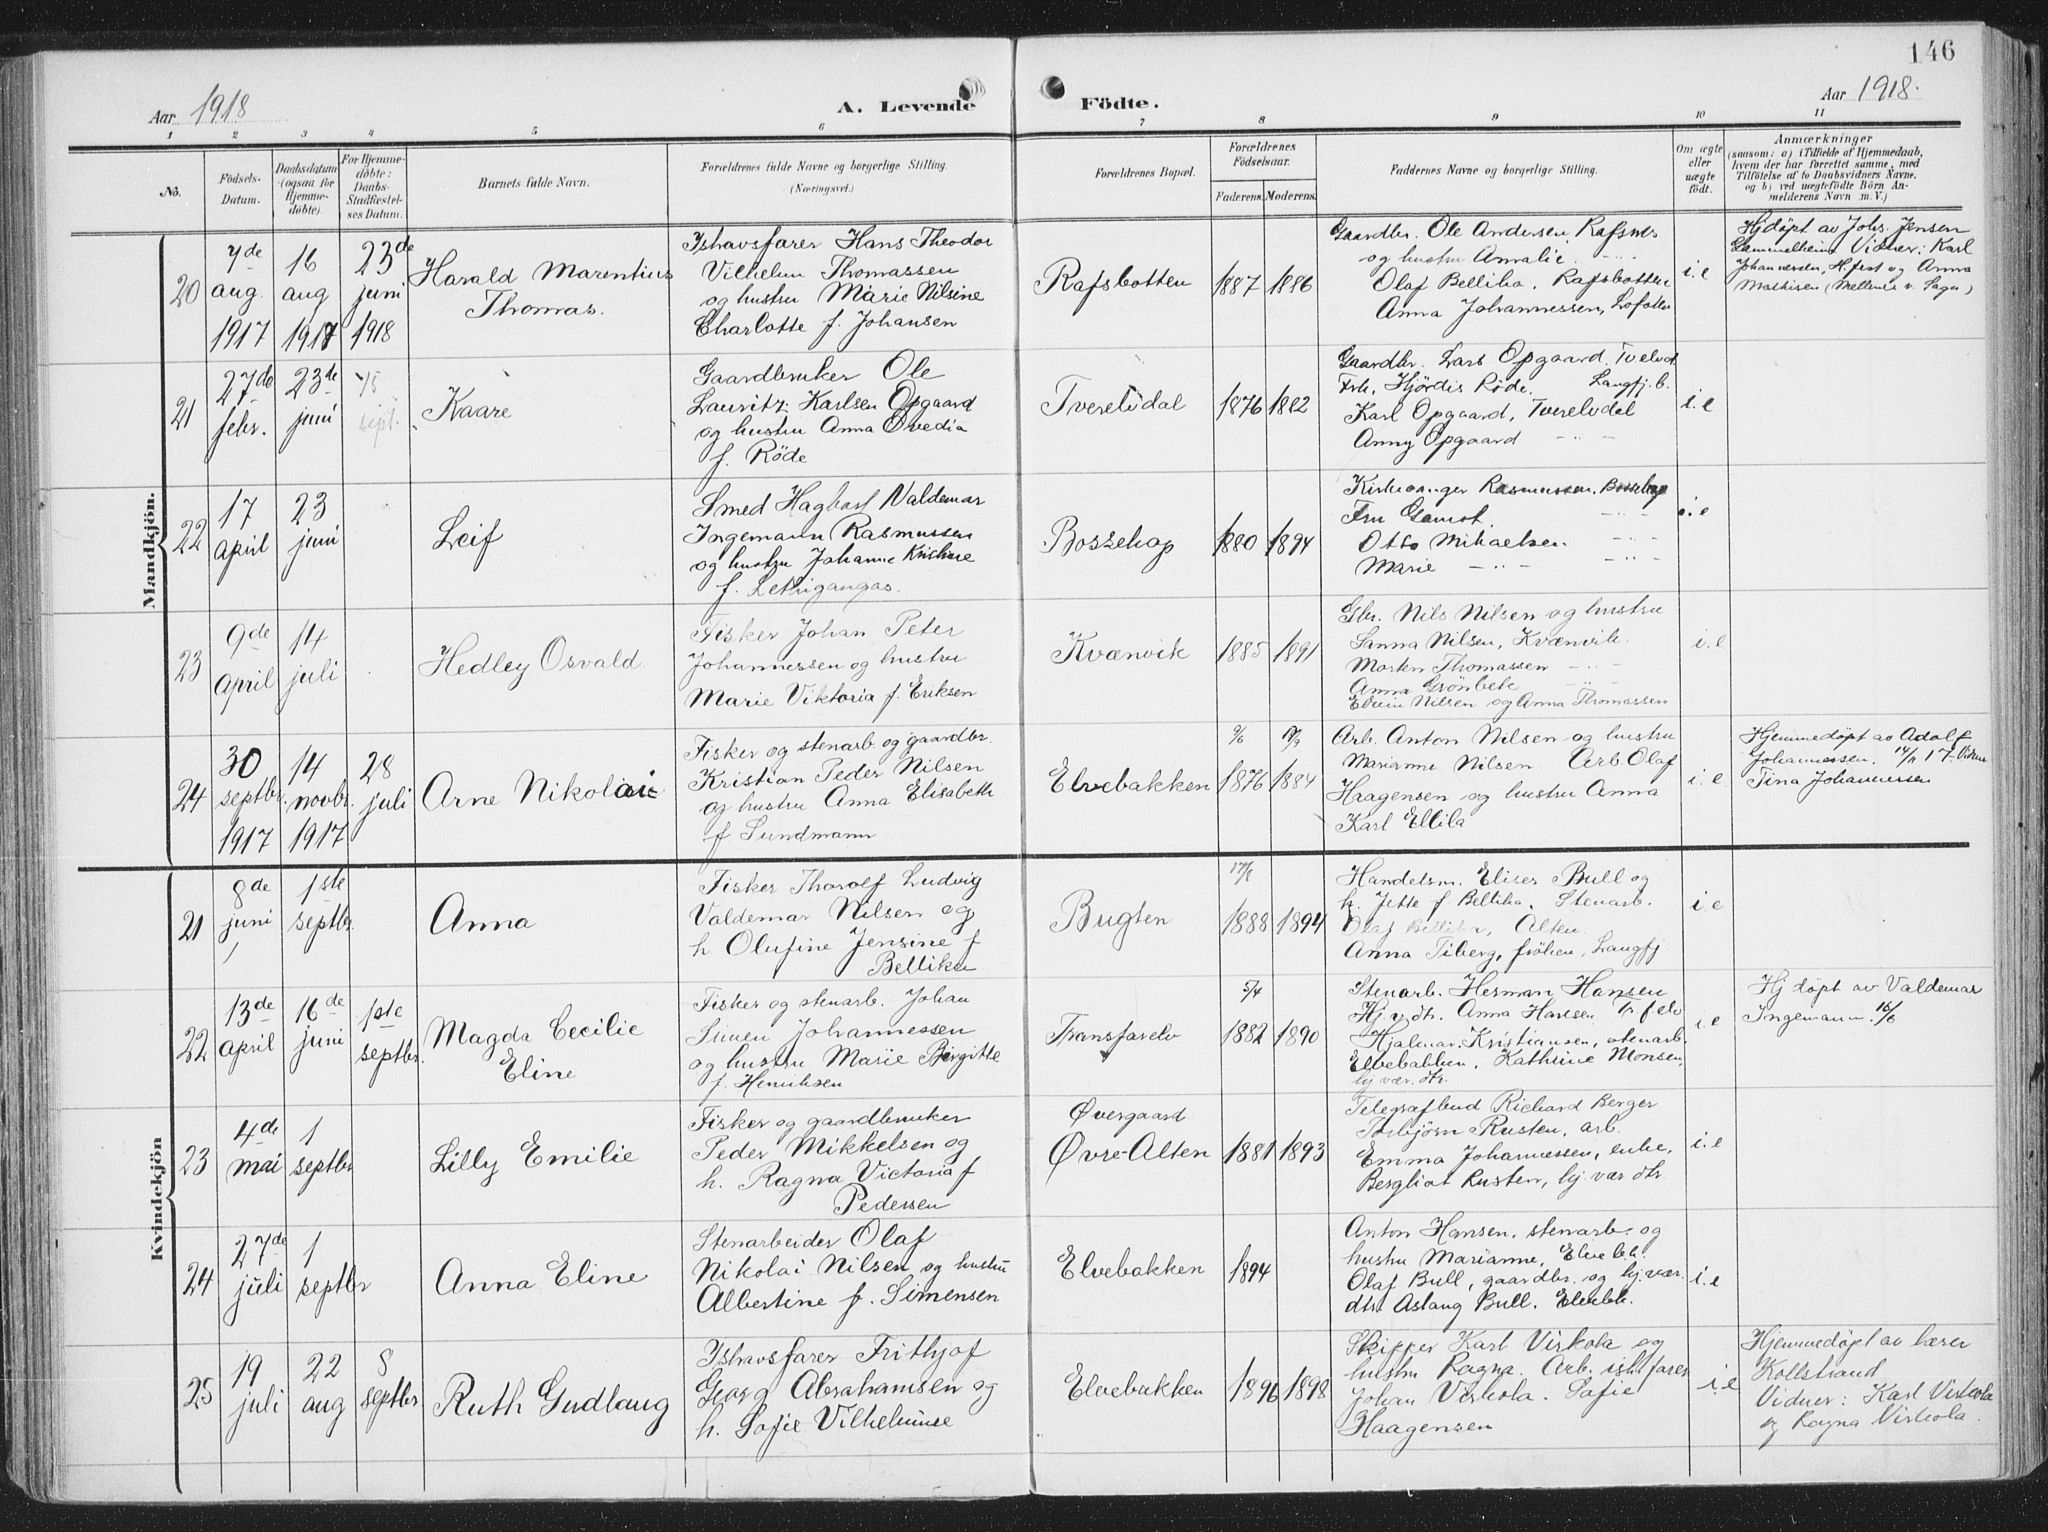 146
Aar 1918
A. Levende
Födte.
Aar 1918.
1 2 3 4 5 6 7 8 9 10 11
No.
Födsels-Datum.
Daabsdatum (ogsaa for Hjemme-döbte).
For Hjemme-döbte: Daabs-Stadfæstel-ses Datum.
Barnets fulde Navn.
Forældrenes fulde Navne og borgerlige Stilling.
(Næringsvei.)
Forældrenes Bopæl.
Forældrenes Födselsaar.
Faderens. Moderens.
Faddernes Navne og borgerlige Stilling.
Om ægte eller uægte födt.
Anmærkninger
(saasom: a) i Tilfælde af Hjemmedaab,
hvem der har forrettet samme, med
Tilföielse af to Daabsvidners Navne.
og b) ved uægte födte Börn An-
melderens Navn m. V.)
Mandkjön.
20
7de aug. 1917
16 aug 1917
23de juni 1918
Harald Marentius
Thomas.
Ishavsfarer Hans Theodor
Vilhelm Thomassen
og hustru Marie Nilsine
Charlotte f. Johansen
Rafsbotten
1887 1886
Gaardbr. Ole Andersen, Rafsnes
og hustru Amalie. - " -
Olaf Bellika. Rafsbotten
Anna Johannessen, Lofoten
i. e
Hjdöpt av Johs. Jensen
Gammelheim Vidner: Karl
Johannessen, H.fest og Anna
Mathisen
21
27de febr.
23de juni
15 sept.
Kaare
Gaardbruker Ole
Lauritz Karlsen Opgaard
og hustru Anna Ovedia
f. Røde
Tverelvdal
1876 1882
Gaardbr. Lars Opgaard, Tverelvd
Frk. Hjördis Røde. Langfj. b.
Karl Opgaard, Tverelvdal
Anny Opgaard - " -
i. e
22
17 april
23 juni
Leif
Smed Hagbart Valdemar
Ingemann Rasmussen
og hustru Johanne Kristine
f.
Bossekop
1880 1894
Kirkesanger Rasmussen, Bossekop
Fru - " -
Otto Mihaelsen - " -
Marie - " - - " -
i. e
23
9de april
14 juli
Hedley Osvald
Fisker Johan Peter
Johannessen og hustru
Marie Viktoria f. Eriksen
Kvænvik
1885 1891
Gbr. Nils Nilsen og hustru
Sanna Nilsen, Kvænvik.
Martin Thomassen - " -
Anna Grönbek - " -
Edvin Nilsen og Anna Thomassen
i. e
24
30 septbr. 1917
14 novbr. 1917
28 juli
Arne Nikolai
Fisker og stenarb. og gaardbr.
Kristian Peder Nilsen
og hustru Anna Elisabeth
f. Sundmann
Elvebakken
1876 1884
Arb. Anton Nilsen og hustru
Marianne Nilsen. Arb. Olaf
Haagensen og hustru Anna
Karl Ellila
i. e
Hjemmedöpt av Adolf
Johannessen, 14/11 17. Vidner
Tina Johannessen
Kvindekjön
21
8de juni
1ste septbr.
Anna
Fisker Thorolf Ludvig
Valdemar Nilsen og
h Olufine Jensine f
Bellika
Bugten
1888 1894
Handelsm. Eliser Bull og
h. Jette f Bellika. Stenarb.
Olaf Bellika, Alten.
Anna Tiberg, fröken, Langfj.
i. e
22
13de april
16de juni
1ste septbr.
Magda Cecilie
Eline
Fisker og stenarb. Johan
Simen Johannessen
og hustru Marie Birgitte
f. Henriksen
Transfarelv
5/4
1882 1890
Stenarb. Herman Hansen
Hj.v.dtr. Anna Hansen Tr.f elv
Hjalmar Kristiansen, stenarb.
Elvebakken. Kathrine Monsen,
hj vær. dtr.
i. e
Hj döpt av Valdemar
Ingemann. 16/6
23
4de mai
1 septbr
Lilly Emilie
Fisker og gaardbruker
Peder Mikkelsen og
h. Ragna Victoria f
Pedersen
Øvergaard
Øvre-Alten
1881 1893
Telegrafbud Richard Berger
Torbjörn Rusten, arb.
Emma Johannessen, enke,
Bergliot Rusten, hj. vær dtr.
i. e
24
27de juli
1 septbr
Anna Eline
Stenarbeider Olaf
Nikolai Nilsen og hustru
Albertine f. Simensen
Elvebakken
1894
Anton Hansen. stenarb. og
hustru Marianne, Elvebk.
Olaf Bull, gaardbr. og hj. vær.
dtr. Aslaug Bull. Elvebk.
i. e
25
19 juli
22 aug
8 septbr
Ruth Gudlaug
Ishavsfarer Frithjof
Georg Abrahamsen og
h. Sofie Vilhelmine
Elvebakken
1896 1898
Skipper Karl Virkola og
hustru Ragna. Arb. ish. farer
Johan Virkola. Sofie
Haagensen
i. e
Hjemmedöpt av lærer
Kollstrand
Vidner: Karl Virkola
og Ragna Virkola.